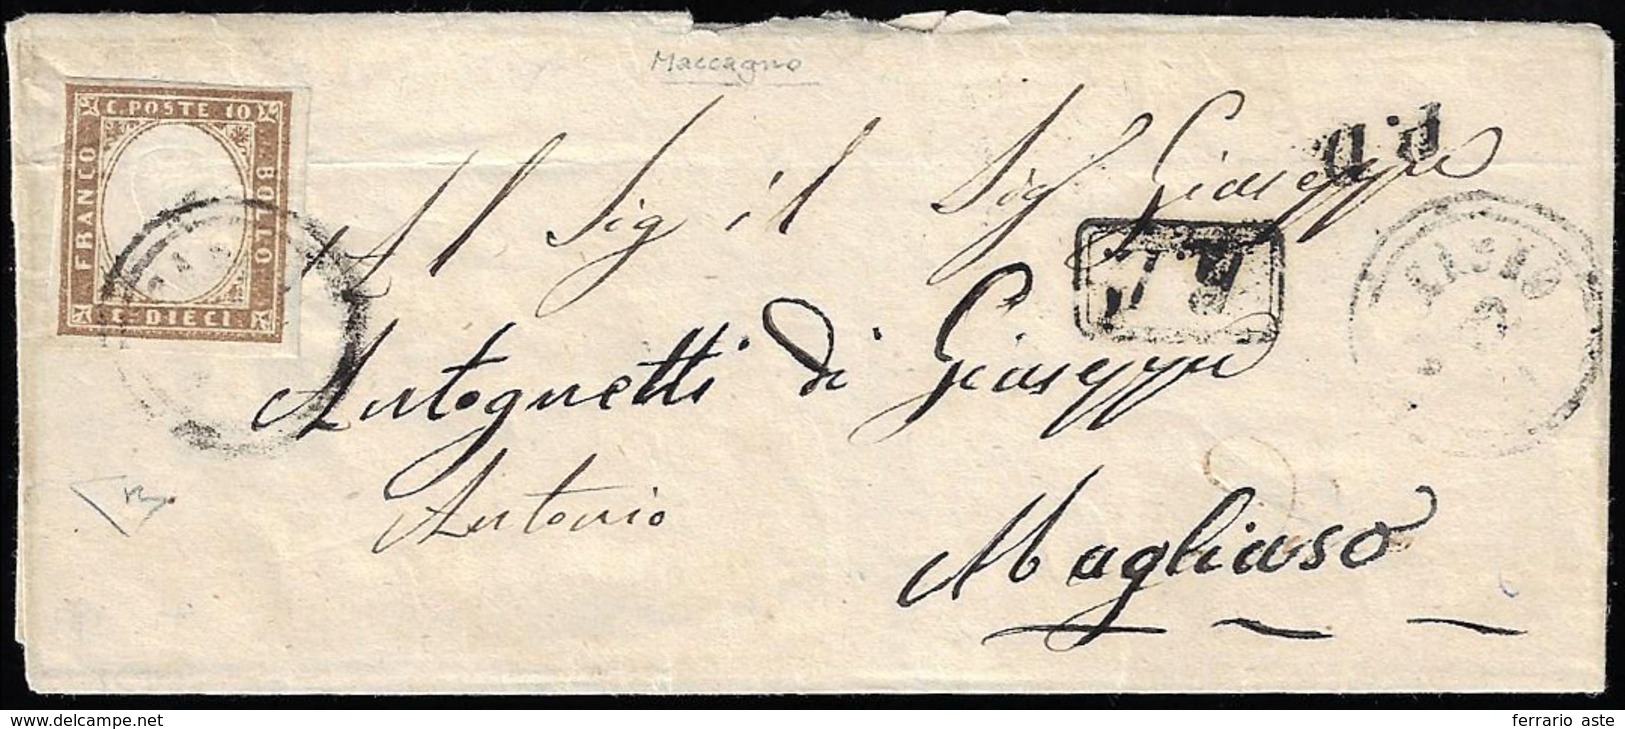 Maccagno
C. POSTE 10
FRANCO
BOLLO
C. DIECI
P.D.
Al Sig il Sig Giuseppe
Antognetti di Giuseppe
Antonio
Magliaso
ferrario aste